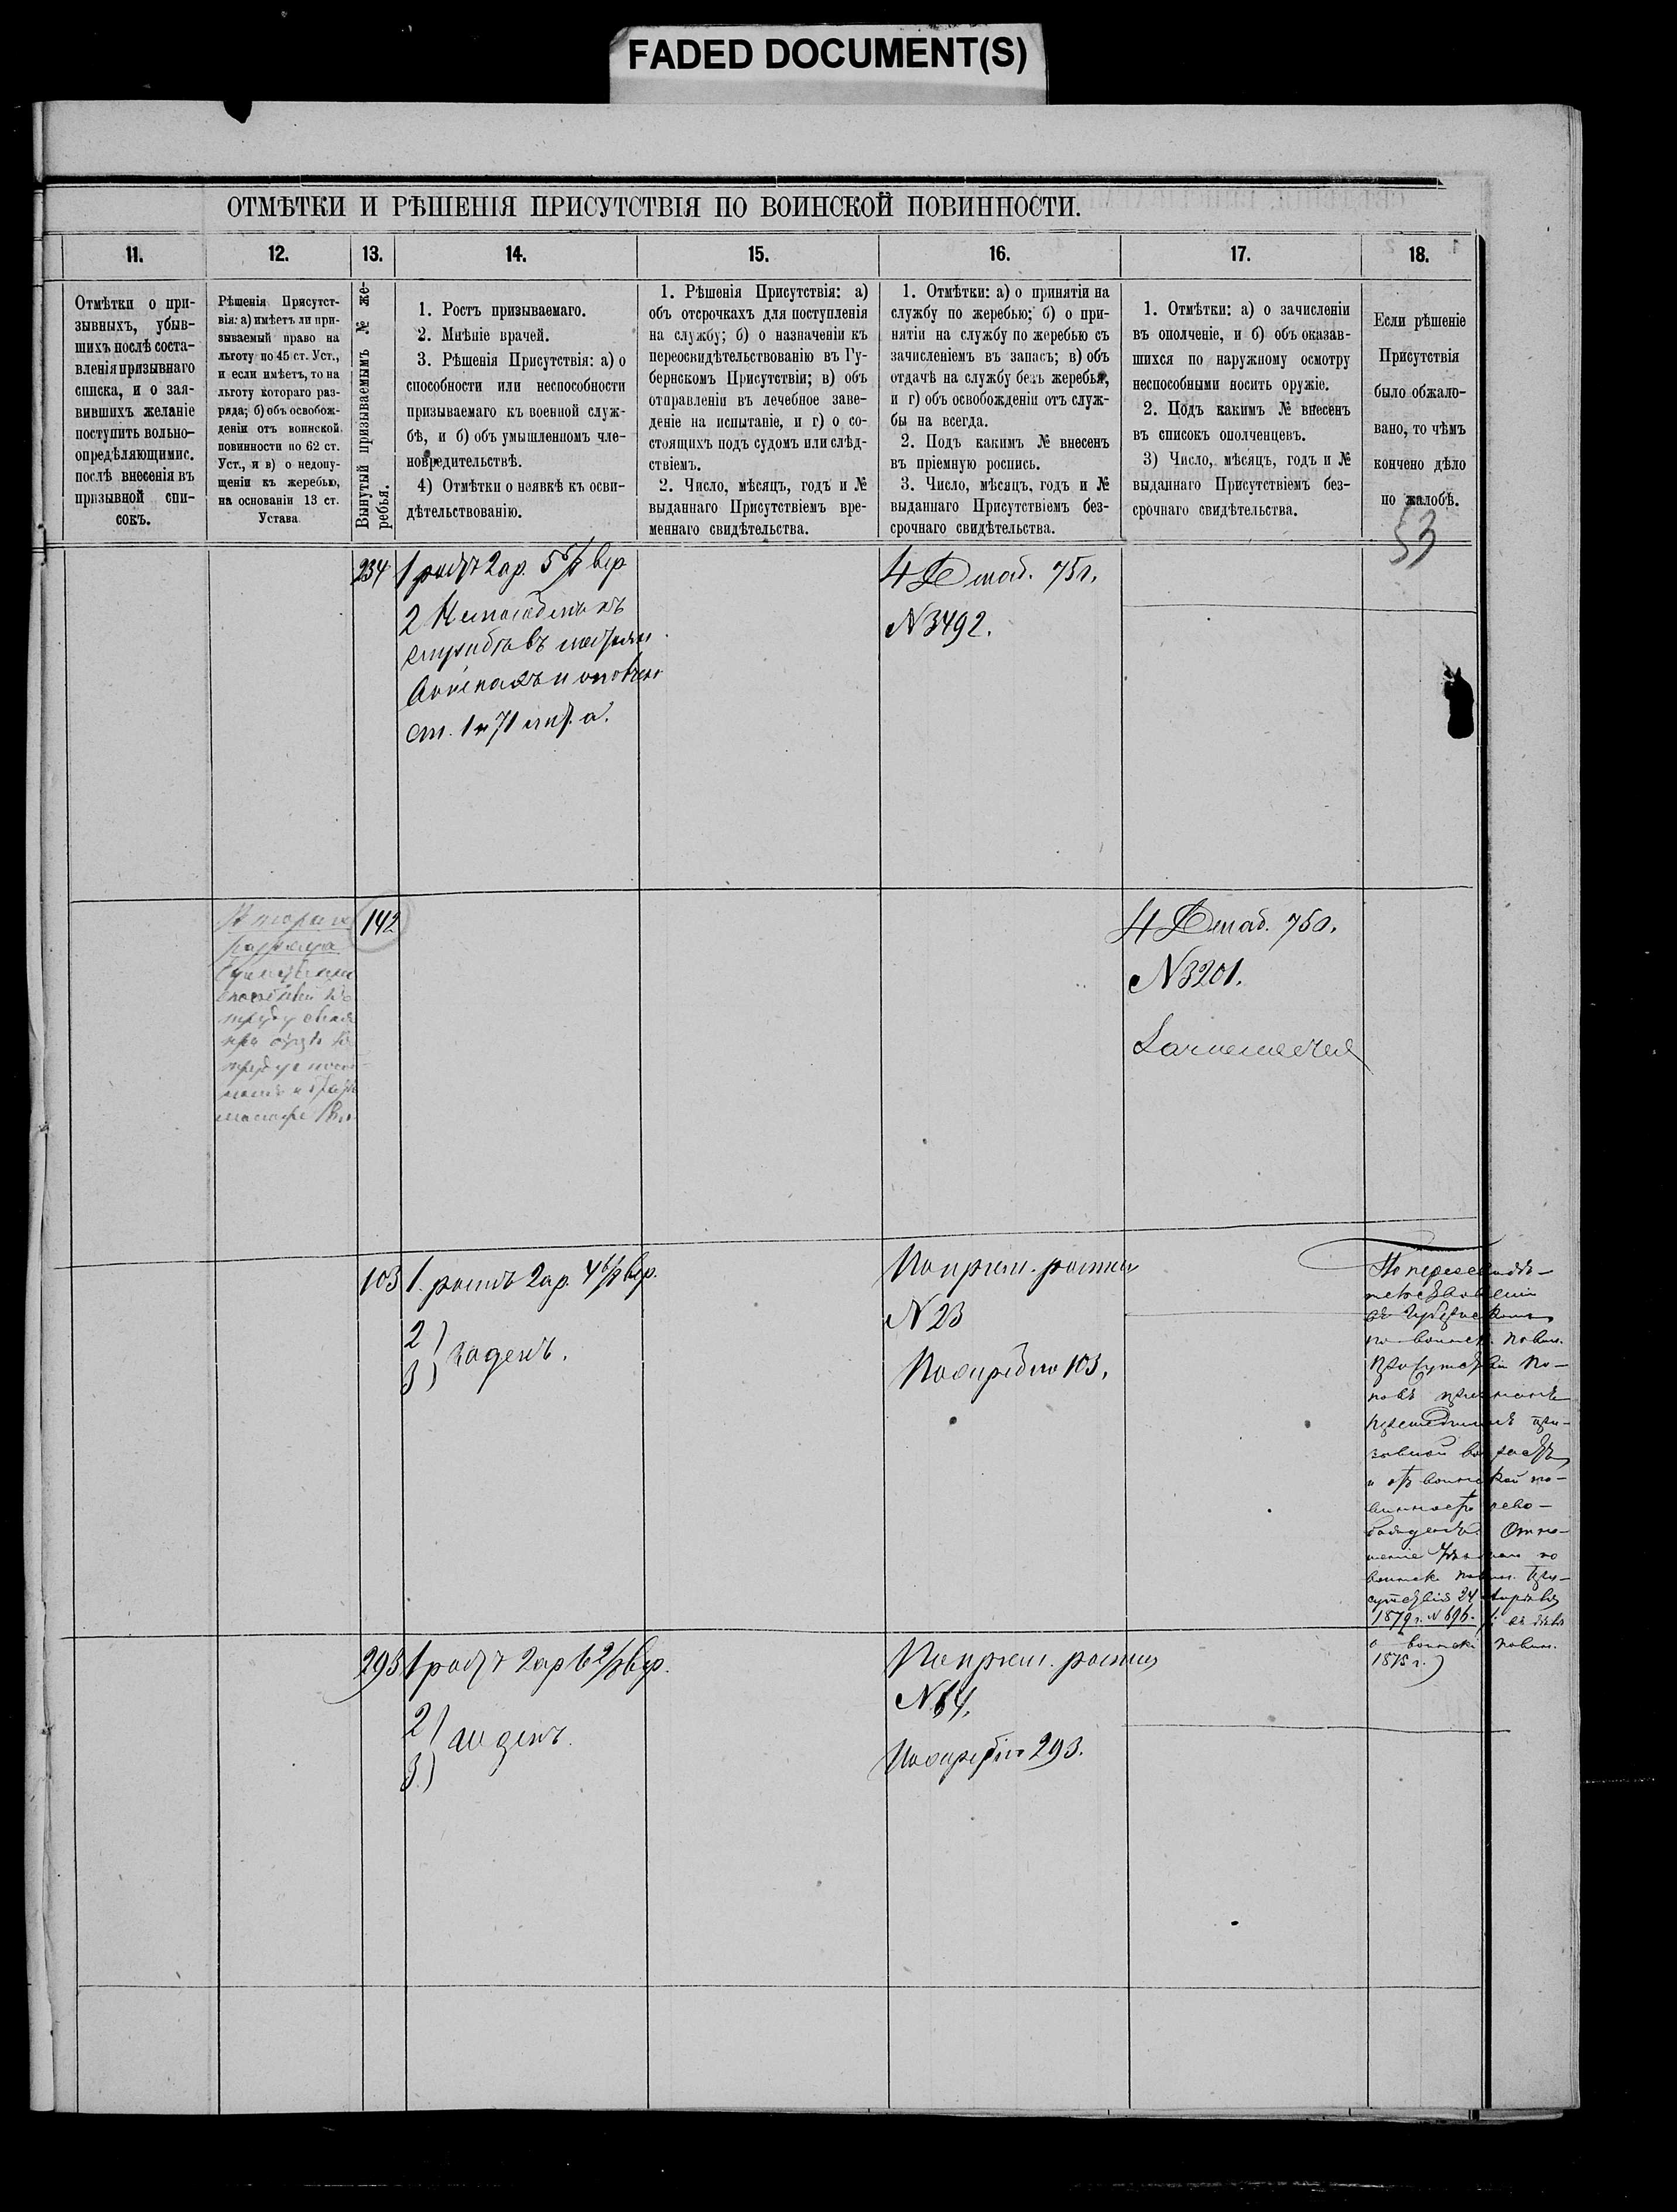 FADED DOCUMENT(S)
ОТМѢТКИ И РѢШЕНІЯ ПРИСУТСТВІЯ ПО ВОИНСКОЙ ПОВИННОСТИ.
11.
12.
13.
14.
15.
16.
17.
18.
Отмѣтки о при-
зывныхъ, убыв-
шихъ послѣ соста-
вленія призывнаго
списка, и о зая-
вившихъ желаніе
поступить вольно-
опредѣляющимис.
послѣ внесенія въ
призывной спи-
сокъ.
Рѣшенія Присутст-
вія: а) имѣетъ ли при-
зываемый право на
льготу по 45 ст. Уст.,
и если имѣетъ, то на
льготу котораго раз-
ряда; б) объ освобож-
деніи отъ воинской
повинности по 62 ст.
Уст., и в) о недопу-
щеніи къ жеребью,
на основаніи 13 ст.
Устава
Вынутый призываемымъ № же-
ребья.
1. Ростъ призываемаго.
2. Мнѣніе врачей.
3. Рѣшенія Присутствія: а) о
способности или неспособности
призываемаго къ военной служ-
бѣ, и б) объ умышленномъ чле-
новредительствѣ.
4) Отмѣтки о неявкѣ къ осви-
дѣтельствованію.
1. Рѣшенія Присутствія: а)
объ отсрочкахъ для поступленія
на службу; б) о назначеніи къ
переосвидѣтельствованію въ Гу-
бернскомъ Присутствіи; в) объ
отправленіи въ лечебное заве-
деніе на испытаніе, и г) о со-
стоящихъ подъ судомъ или слѣд-
ствіемъ.
2. Число, мѣсяцъ, годъ и №
выданнаго Присутствіемъ вре-
меннаго свидѣтельства.
1. Отмѣтки: а) о принятіи на
службу по жеребью; б) о при-
нятіи на службу по жеребью съ
зачисленіемъ въ запасъ; в) объ
отдачѣ на службу безъ жеребья,
и г) объ освобожденіи отъ служ-
бы на всегда.
2. Подъ какимъ № внесенъ
въ пріемную роспись.
3. Число, мѣсяцъ, годъ и №
выданнаго Присутствіемъ без-
срочнаго свидѣтельства.
1. Отмѣтки: а) о зачисленіи
въ ополченіе, и б) объ оказав-
шихся по наружному осмотру
неспособными носить оружіе.
2. Подъ какимъ № внесенъ
въ списокъ ополченцевъ.
3) Число, мѣсяцъ, годъ и №
выданнаго Присутствіемъ без-
срочнаго свидѣтельства.
Если рѣшеніе
Присутствія
было обжало-
вано, то чѣмъ
кончено дѣло
по жалобѣ.
53
234
1 ростъ 2 ар. 5 6/8 вер
2 Неспособенъ къ
службѣ въ
ст. 1 и 71 лит. а.
4 Декаб. 75г.
N 3492.
142
разряда
4 Декаб. 75г.
N 3201.
103
1. ростъ 2 ар. 4 6/8 вер.
2)
3) годенъ.
По прiем. росписи
N 23
По жребію 103.
По переосвидѣ-
тельствованіи
въ Губернскомъ
по воинск. повин.
Присутствіи По-
повъ признанъ
и отъ воинской по-
винности осво-
божденъ. Отно-
шеніе
воинск. повин. При-
сутствія 24
1879 г. N 696.
о воинск. повин.
1875 г.)
293
1 ростъ 2 ар 6 2/8 вер.
2)
3) годенъ.
По прiем. росписи
N 64.
По жребію 293.